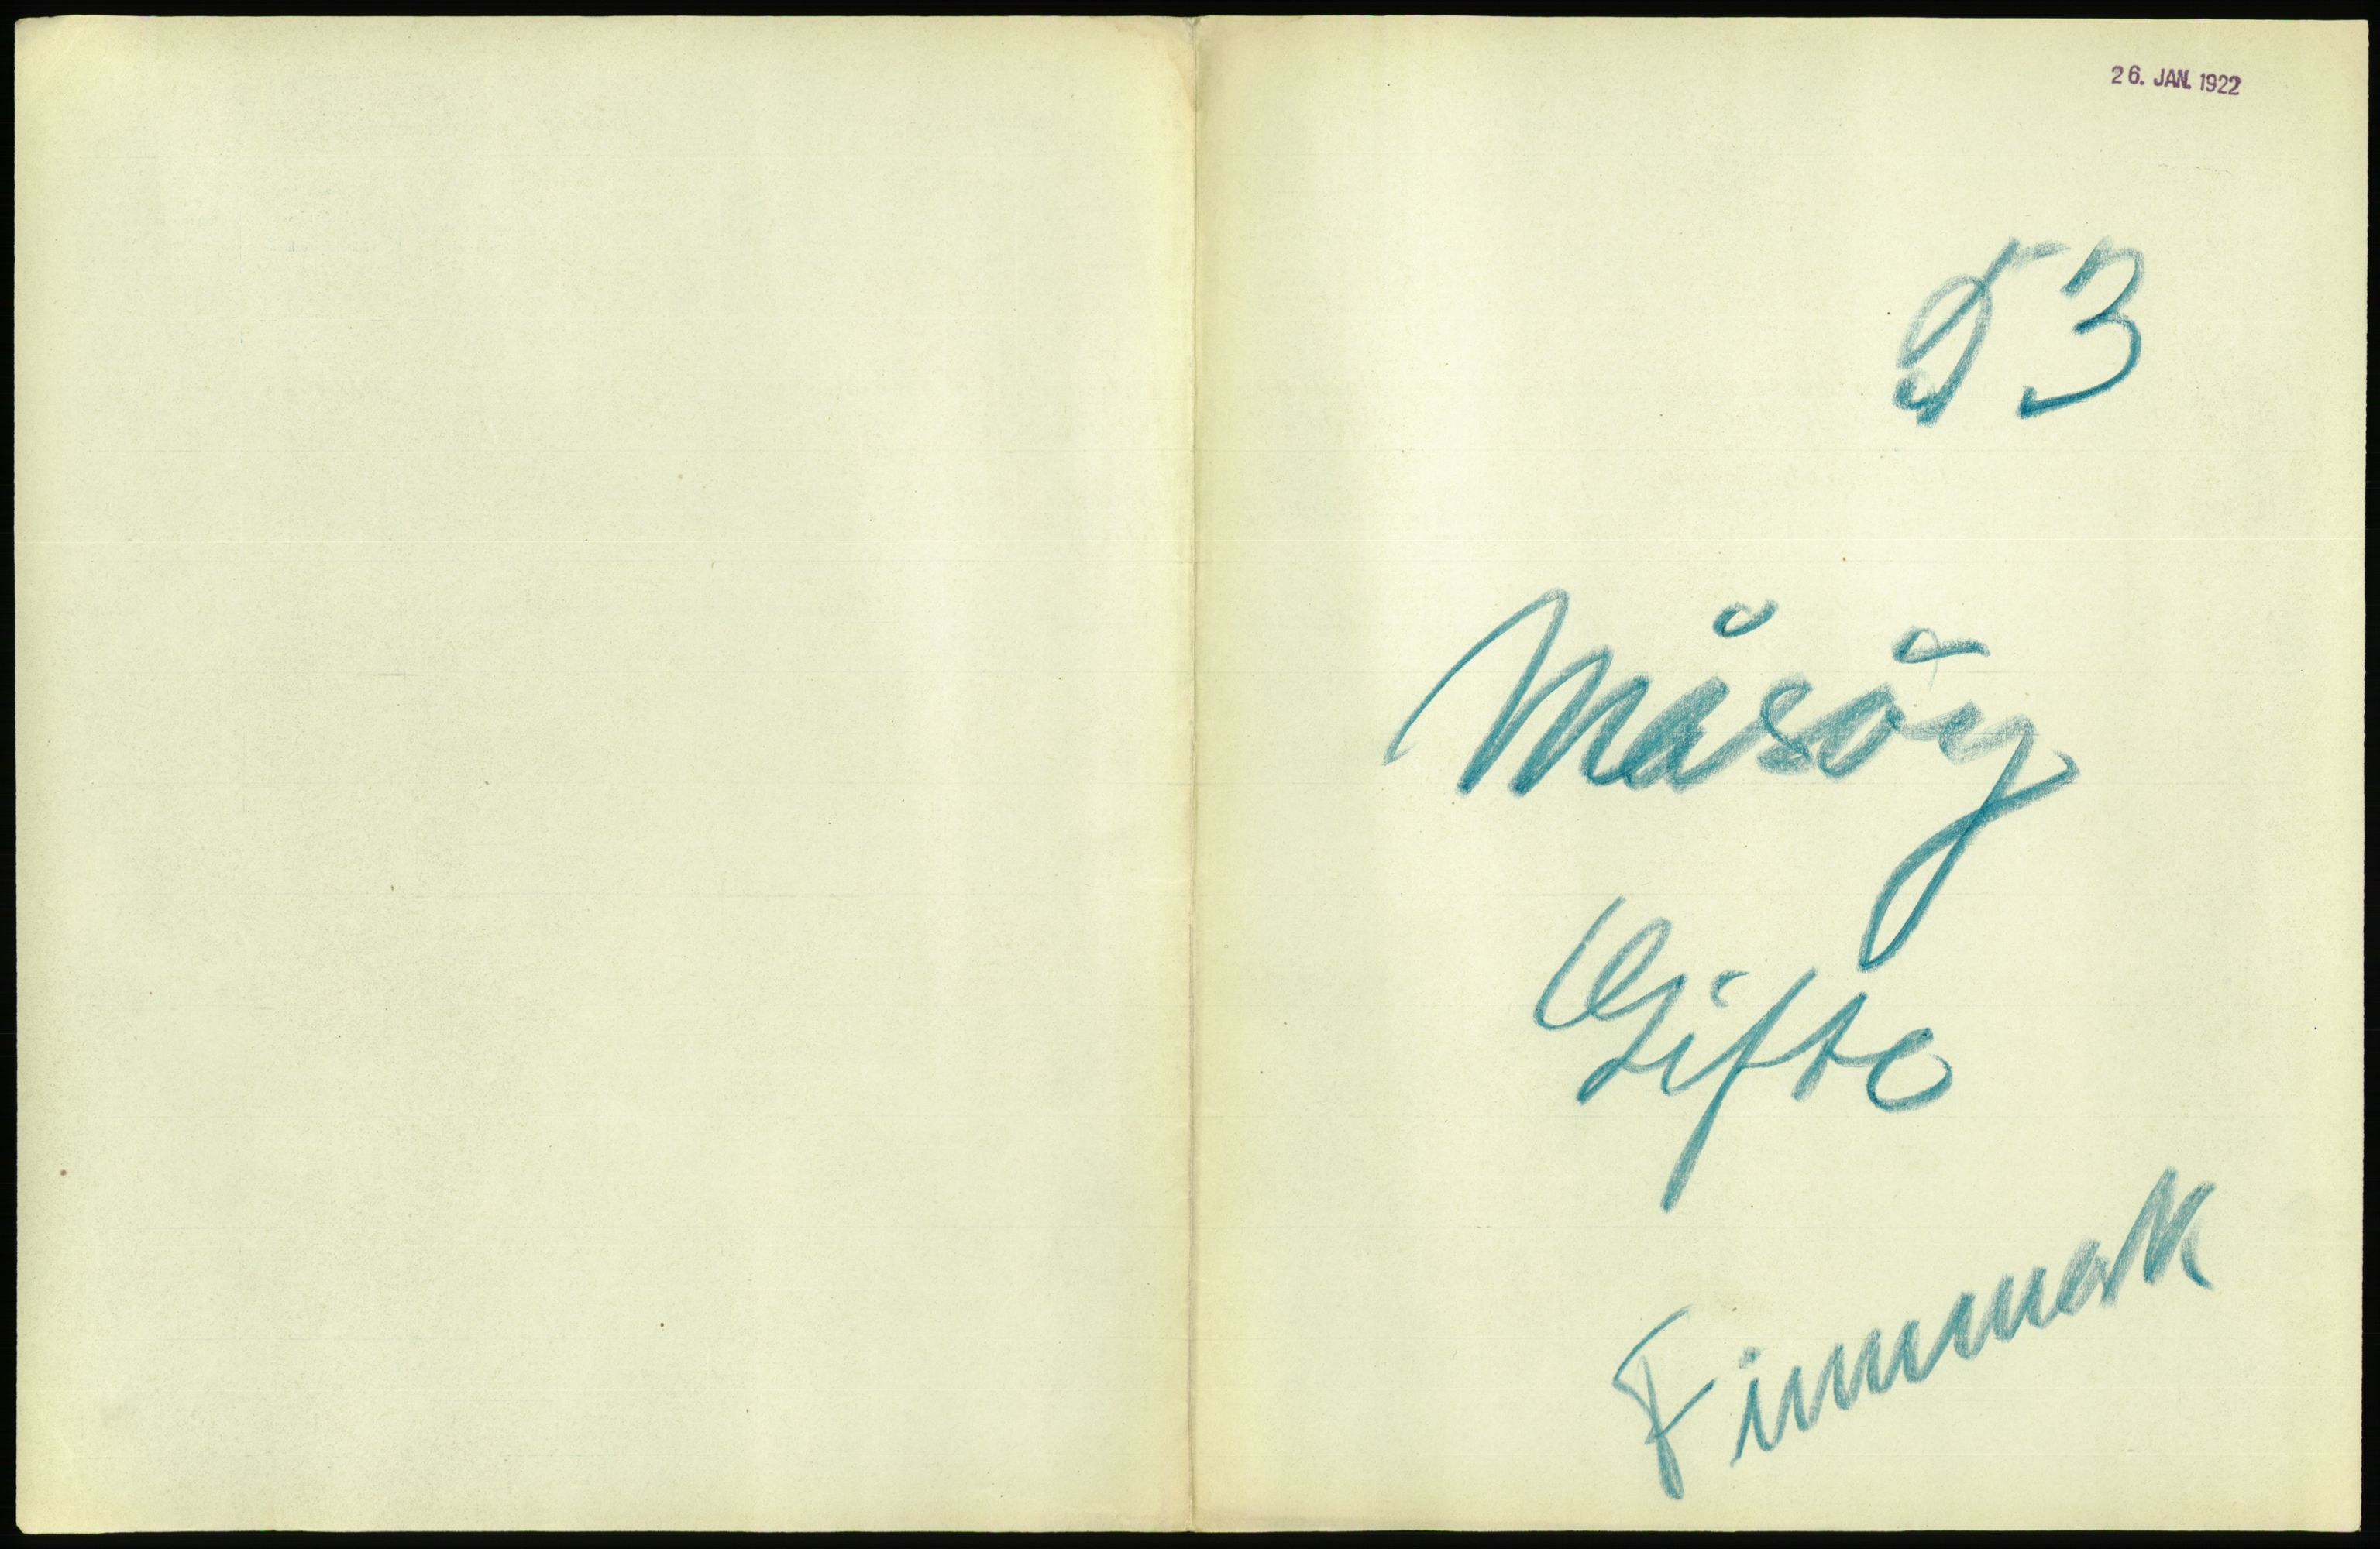 26. JAN. 1922
53
Måsöy
Gifte
Finnmark